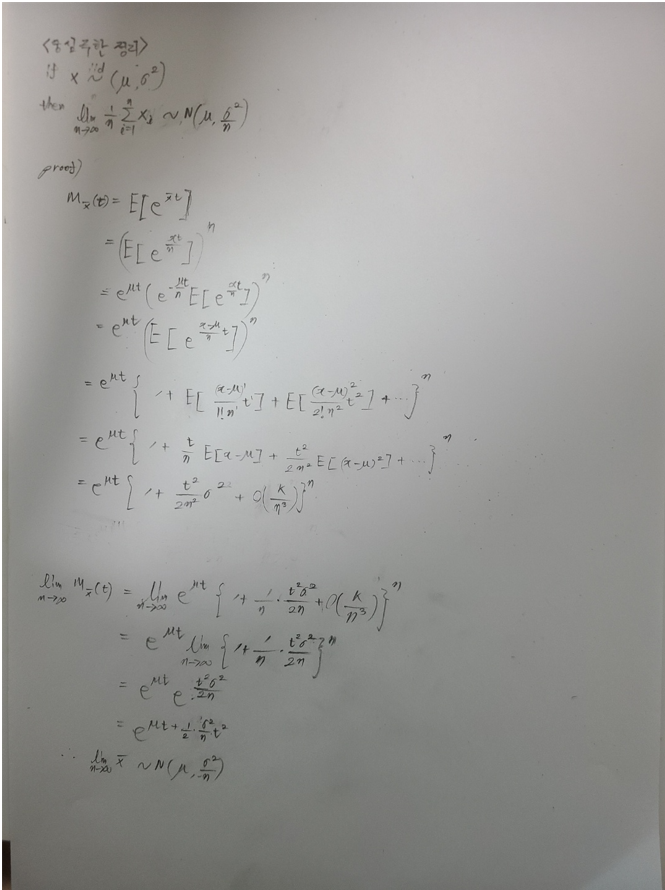 <중심극한 정리>
if x iid~ (μ, σ²)
then lim n→∞ 1/n Σ i=1 n Xi ~ N(μ, σ²/n)
proof)
M_x̄(t) = E[e^{x̄t}]
= (E[e^{xt/n}])^n
= e^{μt} (e^{-μt/n} E[e^{xt/n}])^n
= e^{μt} (E[e^{(x-μ)/n t}])^n
= e^{μt} { 1 + E[(x-μ)¹/(1!n¹) t¹] + E[(x-μ)²/(2!n²) t²] + ⋯ }^n
= e^{μt} { 1 + t/n E[x-μ] + t²/(2n²) E[(x-μ)²] + ⋯ }^n
= e^{μt} { 1 + t²/(2n²) σ² + O(k/n³) }^n
lim n→∞ M_x̄(t) = lim n→∞ e^{μt} { 1 + 1/n · t²σ²/(2n) + O(k/n³) }^n
= e^{μt} lim n→∞ { 1 + 1/n · t²σ²/(2n) }^n
= e^{μt} e^{t²σ²/(2n)}
= e^{μt + 1/2 · σ²/n t²}
∴ lim n→∞ x̄ ~ N(μ, σ²/n)